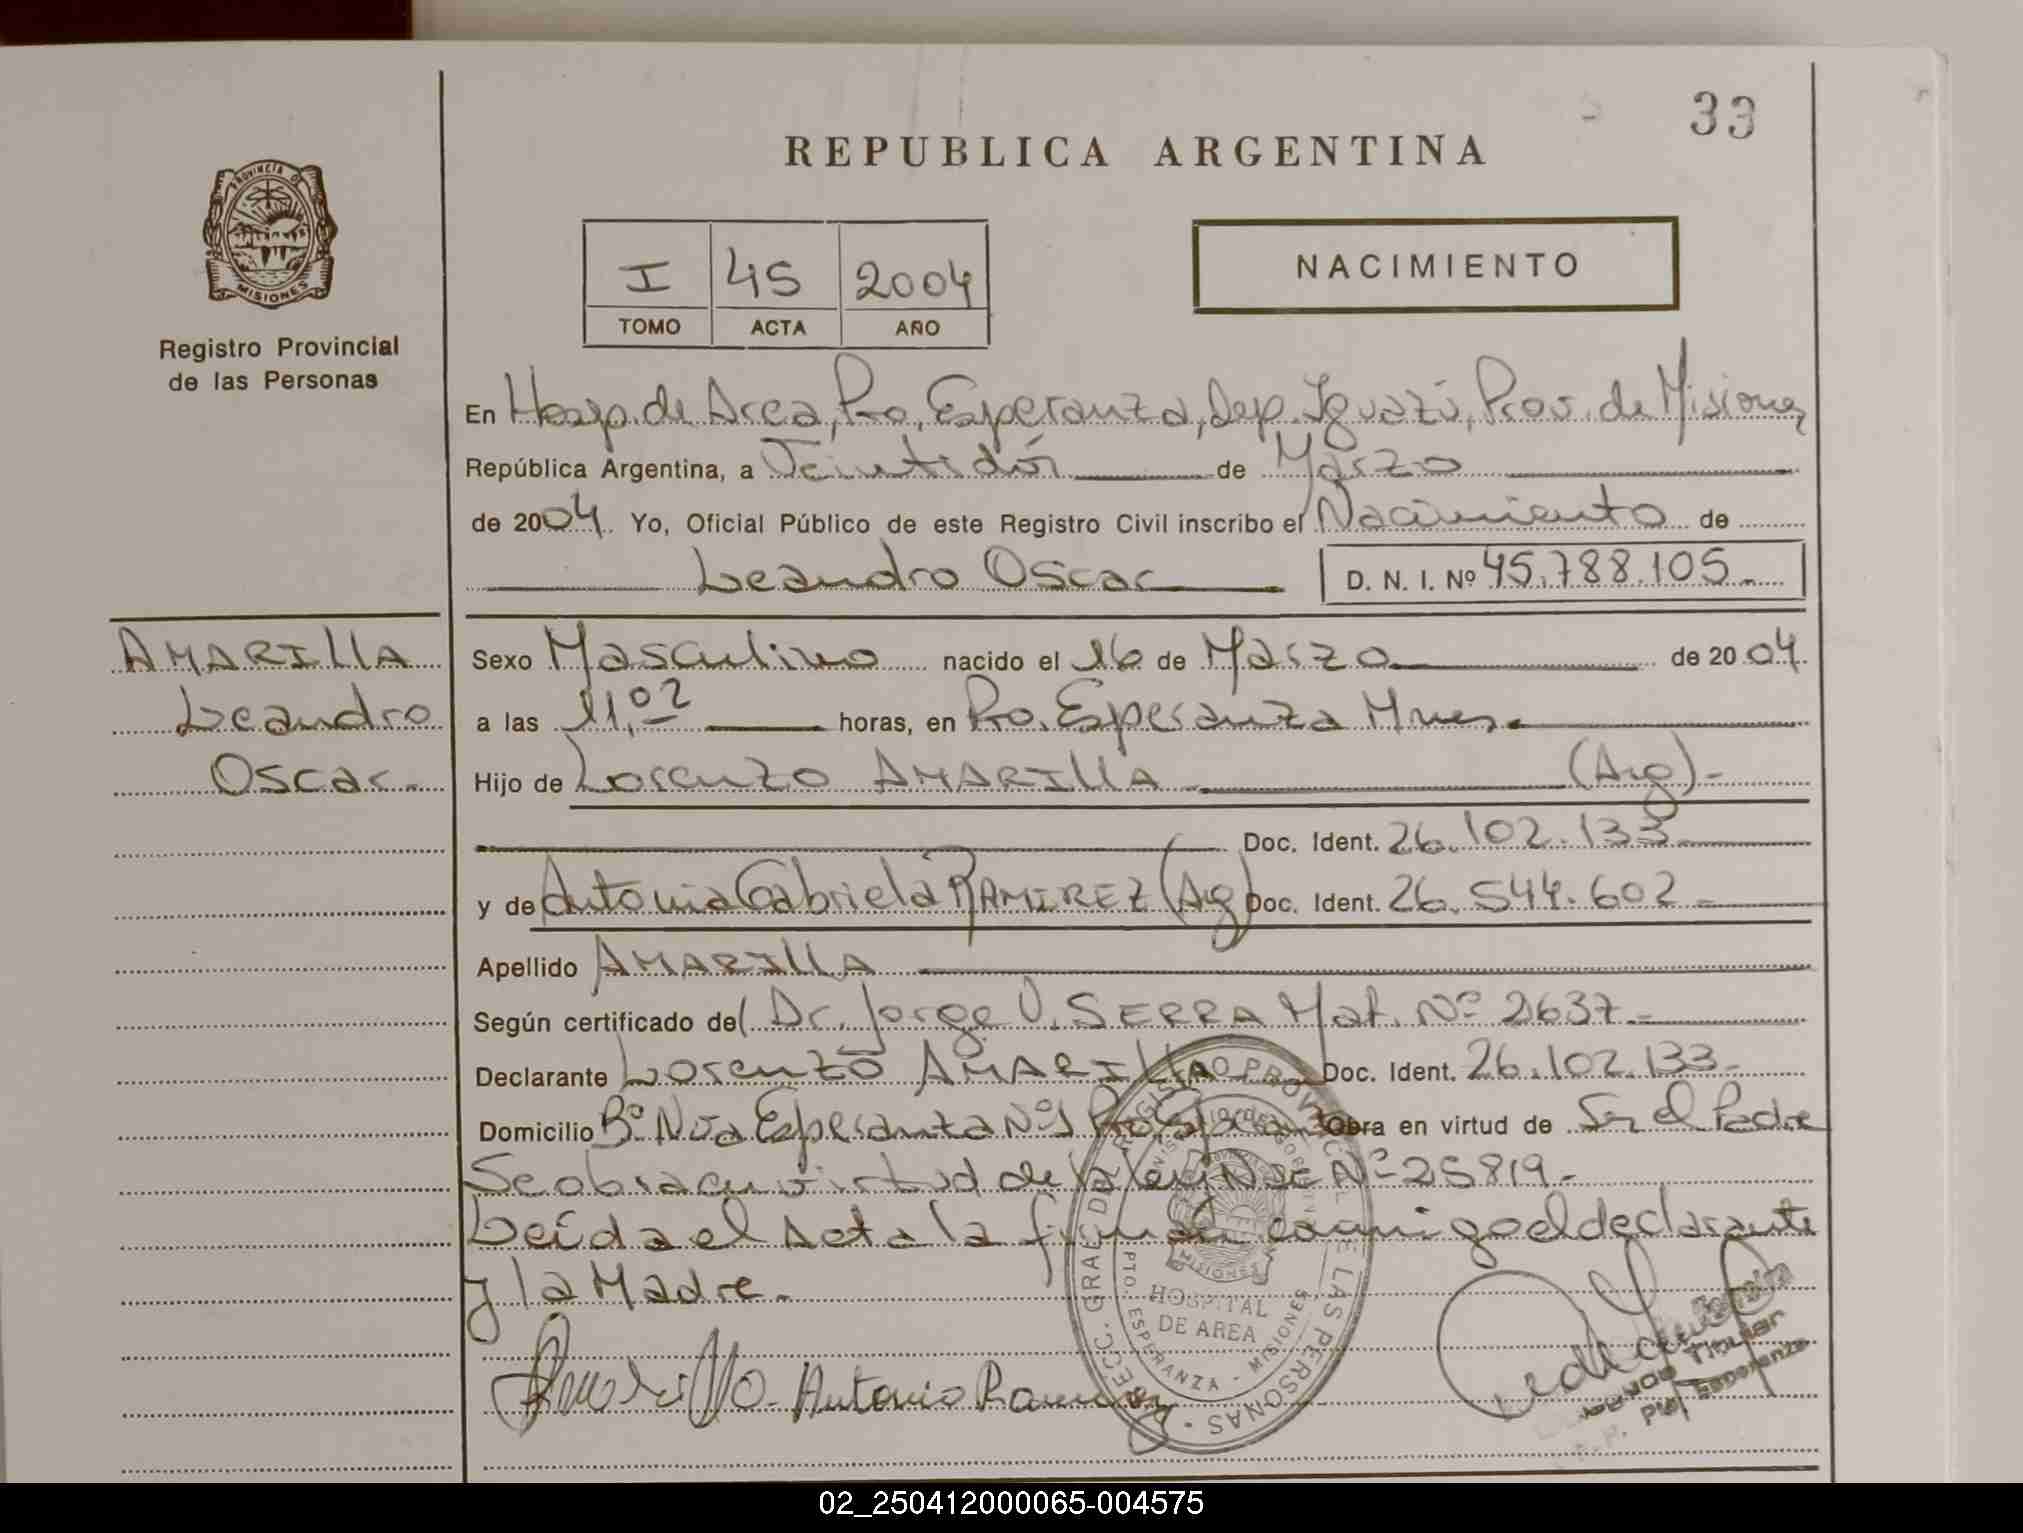 33
REPUBLICA ARGENTINA
PROVINCIA DE
MISIONES
Registro Provincial
de las Personas
I 45 2004
TOMO ACTA AÑO
NACIMIENTO
En Hosp. de Area, Pto. Esperanza, Dep. Iguazú, Prov. de Misiones
República Argentina, a Veintidós de Marzo
de 2004. Yo, Oficial Público de este Registro Civil inscribo el Nacimiento de
Leandro Oscar D. N. I. Nº 45.788.105.-
AMARILLA
Leandro
Oscar.-
Sexo Masculino nacido el 16 de Marzo de 2004.
a las 11,02 horas, en Pto. Esperanza Mnes.
Hijo de Lorenzo AMARILLA (Arg).-
Doc. Ident. 26.102.133
y de Antonia Gabriela RAMIREZ (Arg) Doc. Ident. 26.544.602.-
Apellido AMARILLA
Según certificado del Dr. Jorge V. SERRA Mat. Nº 2637.-
Declarante Lorenzo AMARILLA Doc. Ident. 26.102.133.-
Domicilio Bº Nva Esperanza Nº 1 Pto Obra en virtud de Ser el Padre
Se obra en virtud de la Ley Nº 25819.-
Leída el Acta la firman conmigo el declarante
y la Madre.-
Amarilla - Antonia Ramirez
DIRECC. GRAL. DEL REGISTRO PROVINCIAL DE LAS PERSONAS
MISIONES
HOSPITAL
DE AREA
PTO. ESPERANZA - MISIONES
Titular
Esperanza
02_250412000065-004575